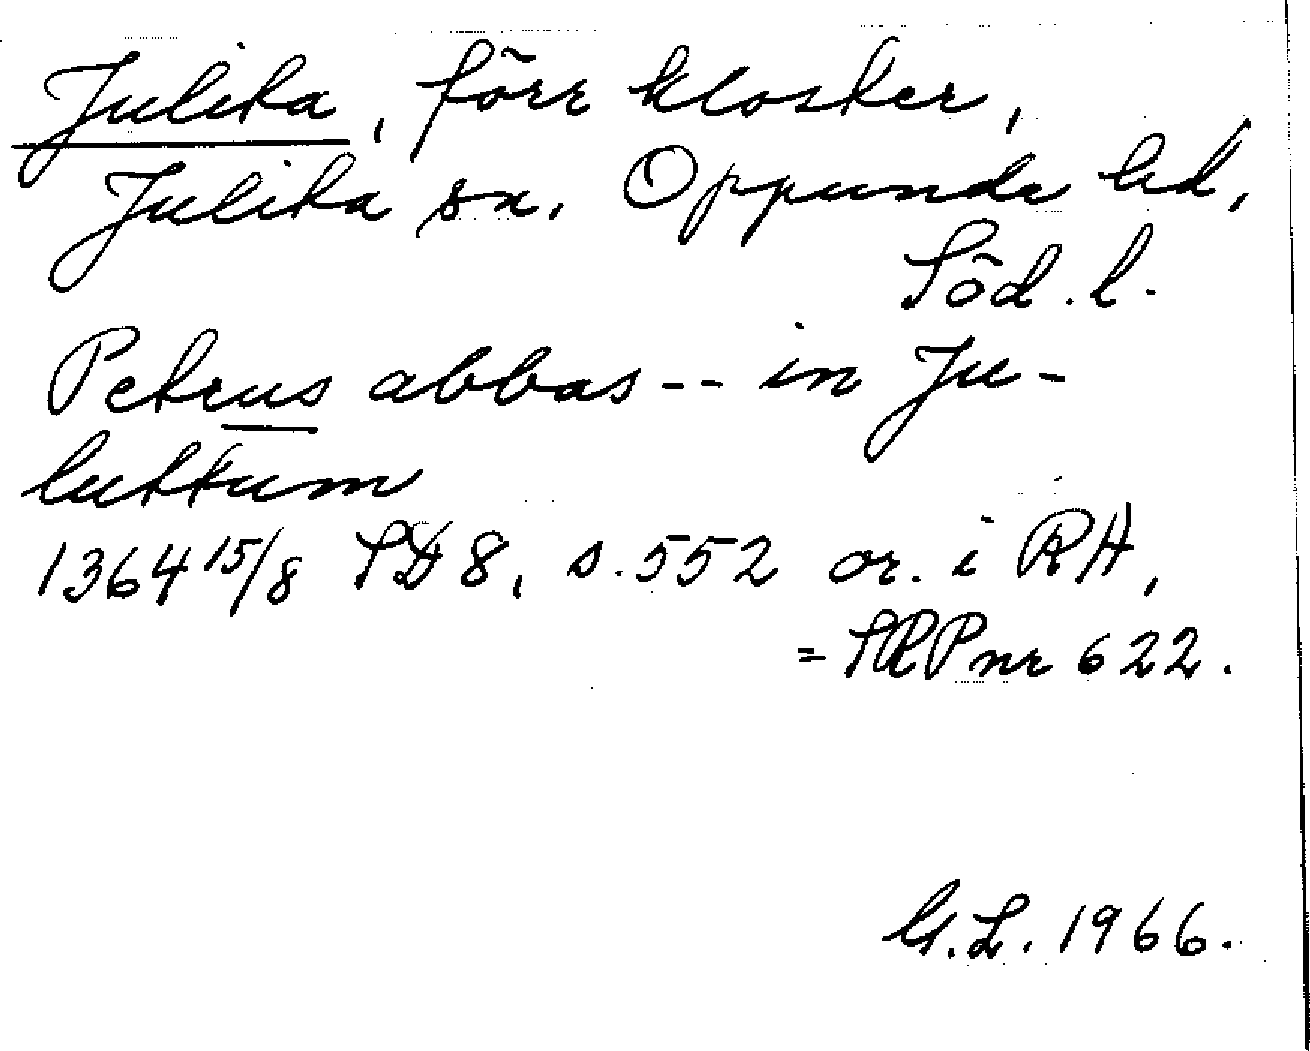 Julita, förr kloster,
Julita sn. Oppunda hd,
Söd. l.
Petrus abbas -- in Ju-
luttum
1364 15/8 SD 8, s. 552 or. i RA,
= SRP nr 622.
G.L. 1966.